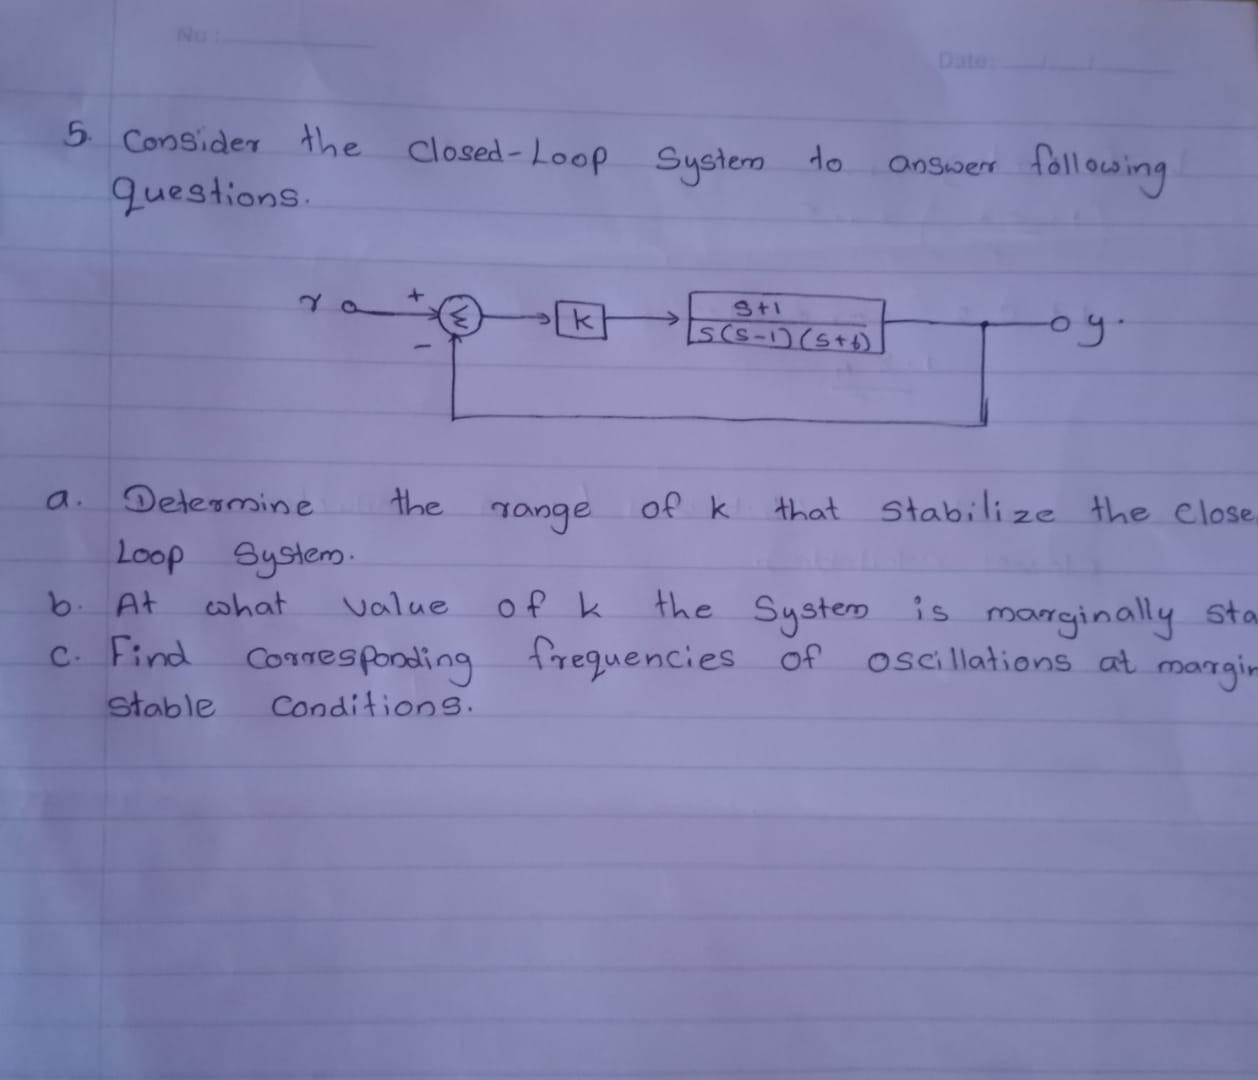 No:
Date:
5. Consider the Closed-Loop System to answer following
questions.
r + Σ k s+1 y.
- s(s-1)(s+6)
a. Determine the range of k that stabilize the Close
Loop System.
b. At what value of k the System is marginally sta
c. Find Corresponding frequencies of oscillations at margin
stable Conditions.